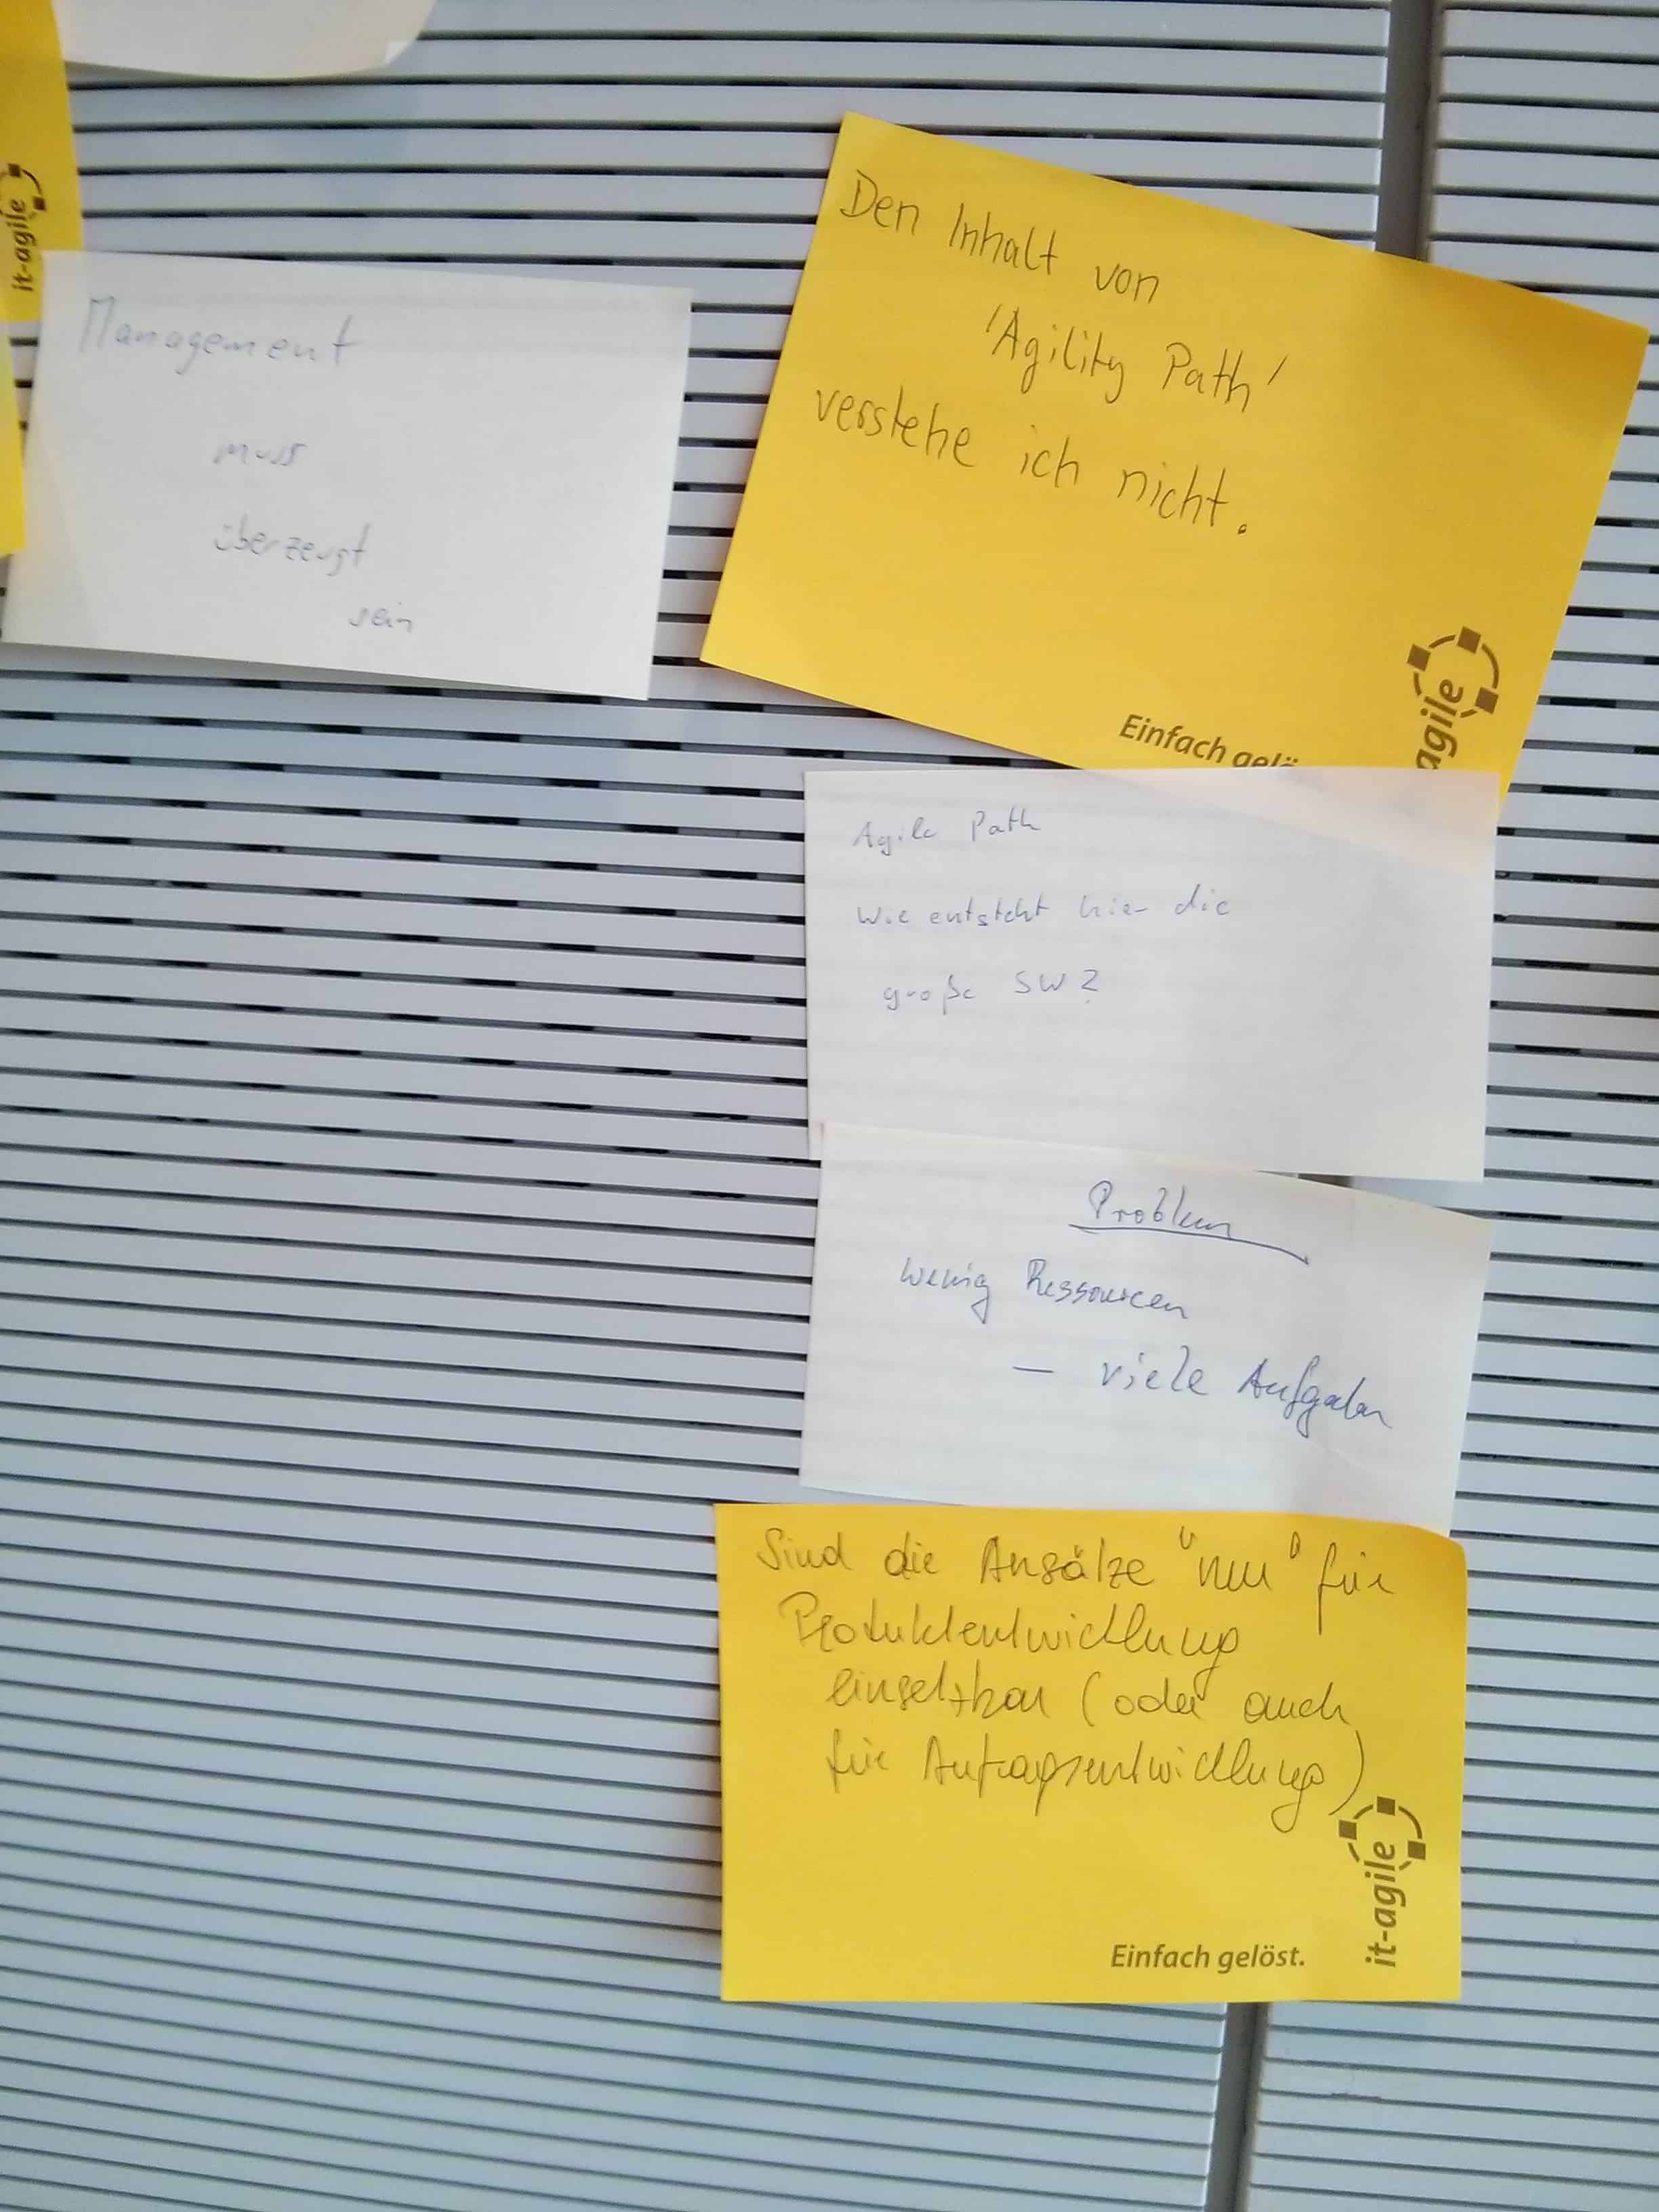 it-agile
Management
muss
überzeugt
sein
Den Inhalt von
'Agility Path'
verstehe ich nicht.
Einfach gelö
agile
Agile Path
Wie entsteht hier die
große SW?
Problem
Wenig Ressourcen
– viele Aufgaben
Sind die Ansätze "nur" für
Produktentwicklung
einsetzbar (oder auch
für Auftragsentwicklung)
it-agile
Einfach gelöst.